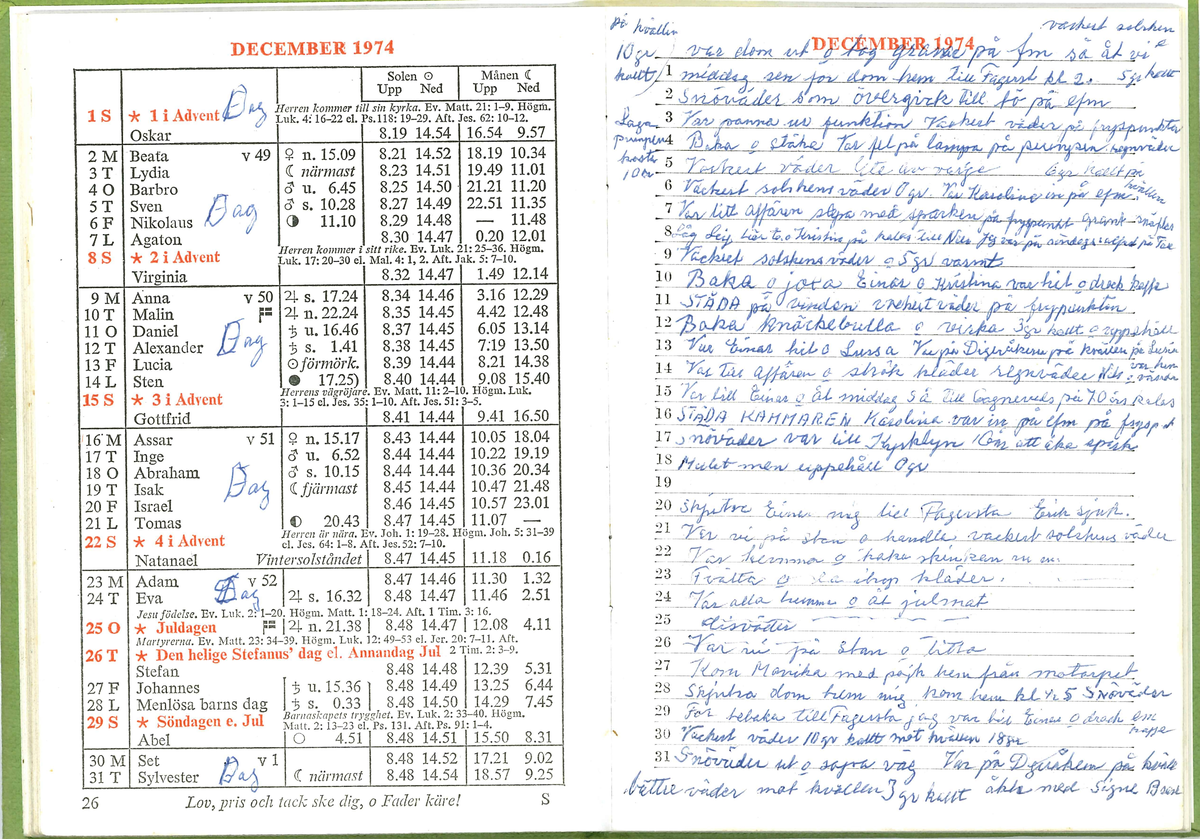 DECEMBER 1974
Solen ☉ Månen ☾
Upp Ned Upp Ned
Herren kommer till sin kyrka. Ev. Matt. 21: 1–9. Högm.
1 S ★ 1 i Advent Dag Luk. 4: 16–22 el. Ps.118: 19–29. Aft. Jes. 62: 10–12.
Oskar 8.19 14.54 16.54 9.57
2 M Beata v 49 ♀ n. 15.09 8.21 14.52 18.19 10.34
3 T Lydia ☾ närmast 8.23 14.51 19.49 11.01
4 O Barbro ♂ u. 6.45 8.25 14.50 21.21 11.20
5 T Sven Dag ♂ s. 10.28 8.27 14.49 22.51 11.35
6 F Nikolaus ◑ 11.10 8.29 14.48 — 11.48
7 L Agaton 8.30 14.47 0.20 12.01
Herren kommer i sitt rike. Ev. Luk. 21: 25–36. Högm.
8 S ★ 2 i Advent Luk. 17: 20–30 el. Mal. 4: 1, 2. Aft. Jak. 5: 7–10.
Virginia 8.32 14.47 1.49 12.14
9 M Anna v 50 ♃ s. 17.24 8.34 14.46 3.16 12.29
10 T Malin ♃ n. 22.24 8.35 14.45 4.42 12.48
11 O Daniel ♄ u. 16.46 8.37 14.45 6.05 13.14
12 T Alexander Dag ♄ s. 1.41 8.38 14.45 7.19 13.50
13 F Lucia ☉ förmörk. 8.39 14.44 8.21 14.38
14 L Sten ● 17.25) 8.40 14.44 9.08 15.40
Herrens vägröjare. Ev. Matt. 11: 2–10. Högm. Luk.
15 S ★ 3 i Advent 3: 1–15 el. Jes. 35: 1–10. Aft. Jes. 51: 3–5.
Gottfrid 8.41 14.44 9.41 16.50
16 M Assar v 51 ♀ n. 15.17 8.43 14.44 10.05 18.04
17 T Inge ♂ u. 6.52 8.44 14.44 10.22 19.19
18 O Abraham ♂ s. 10.15 8.44 14.44 10.36 20.34
19 T Isak Dag ☾ fjärmast 8.45 14.44 10.47 21.48
20 F Israel 8.46 14.45 10.57 23.01
21 L Tomas ◐ 20.43 8.47 14.45 11.07 —
Herren är nära. Ev. Joh. 1: 19–28. Högm. Joh. 5: 31–39
22 S ★ 4 i Advent el. Jes. 64: 1–8. Aft. Jes. 52: 7–10.
Natanael Vintersolståndet 8.47 14.45 11.18 0.16
23 M Adam v 52 8.47 14.46 11.30 1.32
24 T Eva Dag ♃ s. 16.32 8.48 14.46 11.46 2.51
Jesu födelse. Ev. Luk. 2: 1–20. Högm. Matt. 1: 18–24. Aft. 1 Tim. 3: 16.
25 O ★ Juldagen ♃ n. 21.38 8.48 14.47 12.08 4.11
Martyrerna. Ev. Matt. 23: 34–39. Högm. Luk. 12: 49–53 el. Jer. 20: 7–11. Aft.
26 T ★ Den helige Stefanus' dag el. Annandag Jul 2 Tim. 2: 3–9.
Stefan 8.48 14.48 12.39 5.31
27 F Johannes ♄ u. 15.36 8.48 14.49 13.25 6.44
28 L Menlösa barns dag ♄ s. 0.33 8.48 14.50 14.29 7.45
Barnaskapets trygghet. Ev. Luk. 2: 33–40. Högm.
29 S ★ Söndagen e. Jul Matt. 2: 13–23 el. Ps. 131. Aft. Ps. 91: 1–4.
Abel ○ 4.51 8.48 14.51 15.50 8.31
30 M Set v 1 8.48 14.52 17.21 9.02
31 T Sylvester Dag ☾ närmast 8.48 14.54 18.57 9.25
26 Lov, pris och tack ske dig, o Fader käre! S
på kvällen vackert solsken
DECEMBER 1974
10 gr var dom ut o tog granne på fm så åt vi
kallt 1 middag sen for dom hem till Fagerst kl 2. 5 gr kallt
2 Snöväder som övergick till tö på efm
3 Var panna ur funktion Vackert väder på fryspunkten
Laga pumpen koster 10 kr
4 Baka o städa Var fel på lampa på pumpen regnväder
5 Vackert väder Ute av värge 6 gr kallt på kvällen
6 Vackert solskens väder 0 gr. Var Karolina in på efm.
7 Var till affären med sparken på fryspunkt
8 Kristina på kalas till Nils
9 Vackert solskens väder o 5 gr varmt
10 Baka o Einar o Kristina var hit o drack kaffe
11 STÄDA på vinden vackert väder på fryspunkten
12 Baka knäckebulla o virka 3 gr kallt o uppehåll
13 Var Einar hit o Lussa Var på Digeråkern på kvällen på Lucia
14 Var till affären o strök kläder regnväder Nils var hem o vända
15 Var till Einar o åt middag så till Gagnerud på 70 års kalas
16 STÄDA KAMMAREN Karolina var in på efm på frysp
17 Snöväder var till
18 Mulet men uppehåll 0 gr
19
20 Skjutsa Einar mig till Fagersta Erik sjuk.
21 Var vi på stan o handla vackert solskens väder
22 Var hemma o koka skinkan m m.
23 Tvätta o la ihop kläder.
24 Var alla hemme o åt julmat
25 Hisväder
26 Var vi på stan o titta
27 Kom Monika med pojk hem från motorpet
28 Skjutsa dom hem mig kom hem kl ½ 5 Snöväder
29 For tebaka till Fagersta jag var till Einar o drack em kaffe
30 Vackert väder 10 gr kallt mot kvällen 18 gr
31 Snöväder ut o sopra väg Var på Digeråkern på kväll
bättre väder mot kvällen 3 gr kallt åkte med Signe